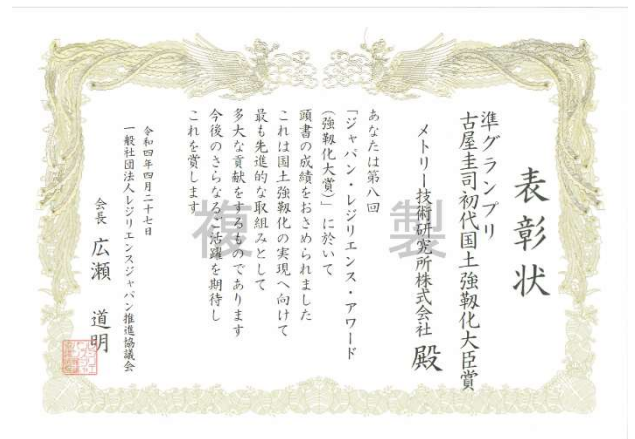 表彰状
準グランプリ
古屋圭司初代国土強靱化大臣賞
メトリー技術研究所株式会社 殿
あなたは第八回
「ジャパン・レジリエンス・アワード
(強靱化大賞)」に於いて
頭書の成績をおさめられました
これは国土強靱化の実現へ向けて
最も先進的な取組みとして
多大な貢献をするものであります
今後のさらなるご活躍を期待し
これを賞します
令和四年四月二十七日
一般社団法人レジリエンスジャパン推進協議会
会長 広瀬 道明
複製